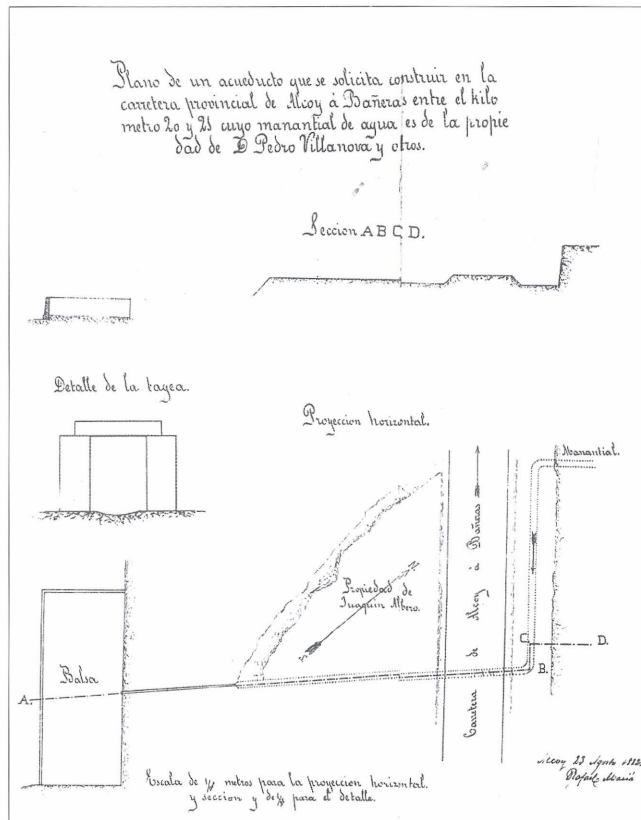 Plano de un acueducto que se solicita construir en la
carretera provincial de Alcoy á Bañeras entre el kilo
metro 20 y 21 cuyo manantial de agua es de la propie
dad de D Pedro Villanova y otros.
Seccion A B C D.
Detalle de la tagea.
Proyeccion horizontal.
Manantial.
Carretera de Alcoy á Bañeras
Propiedad de
Juaquin Albero.
N
S
Balsa
A.
B.
C
D.
Escala de metros para la proyeccion horizontal.
y seccion y de para el detalle.
Alcoy 23 Agosto 1882
Rafael Masiá